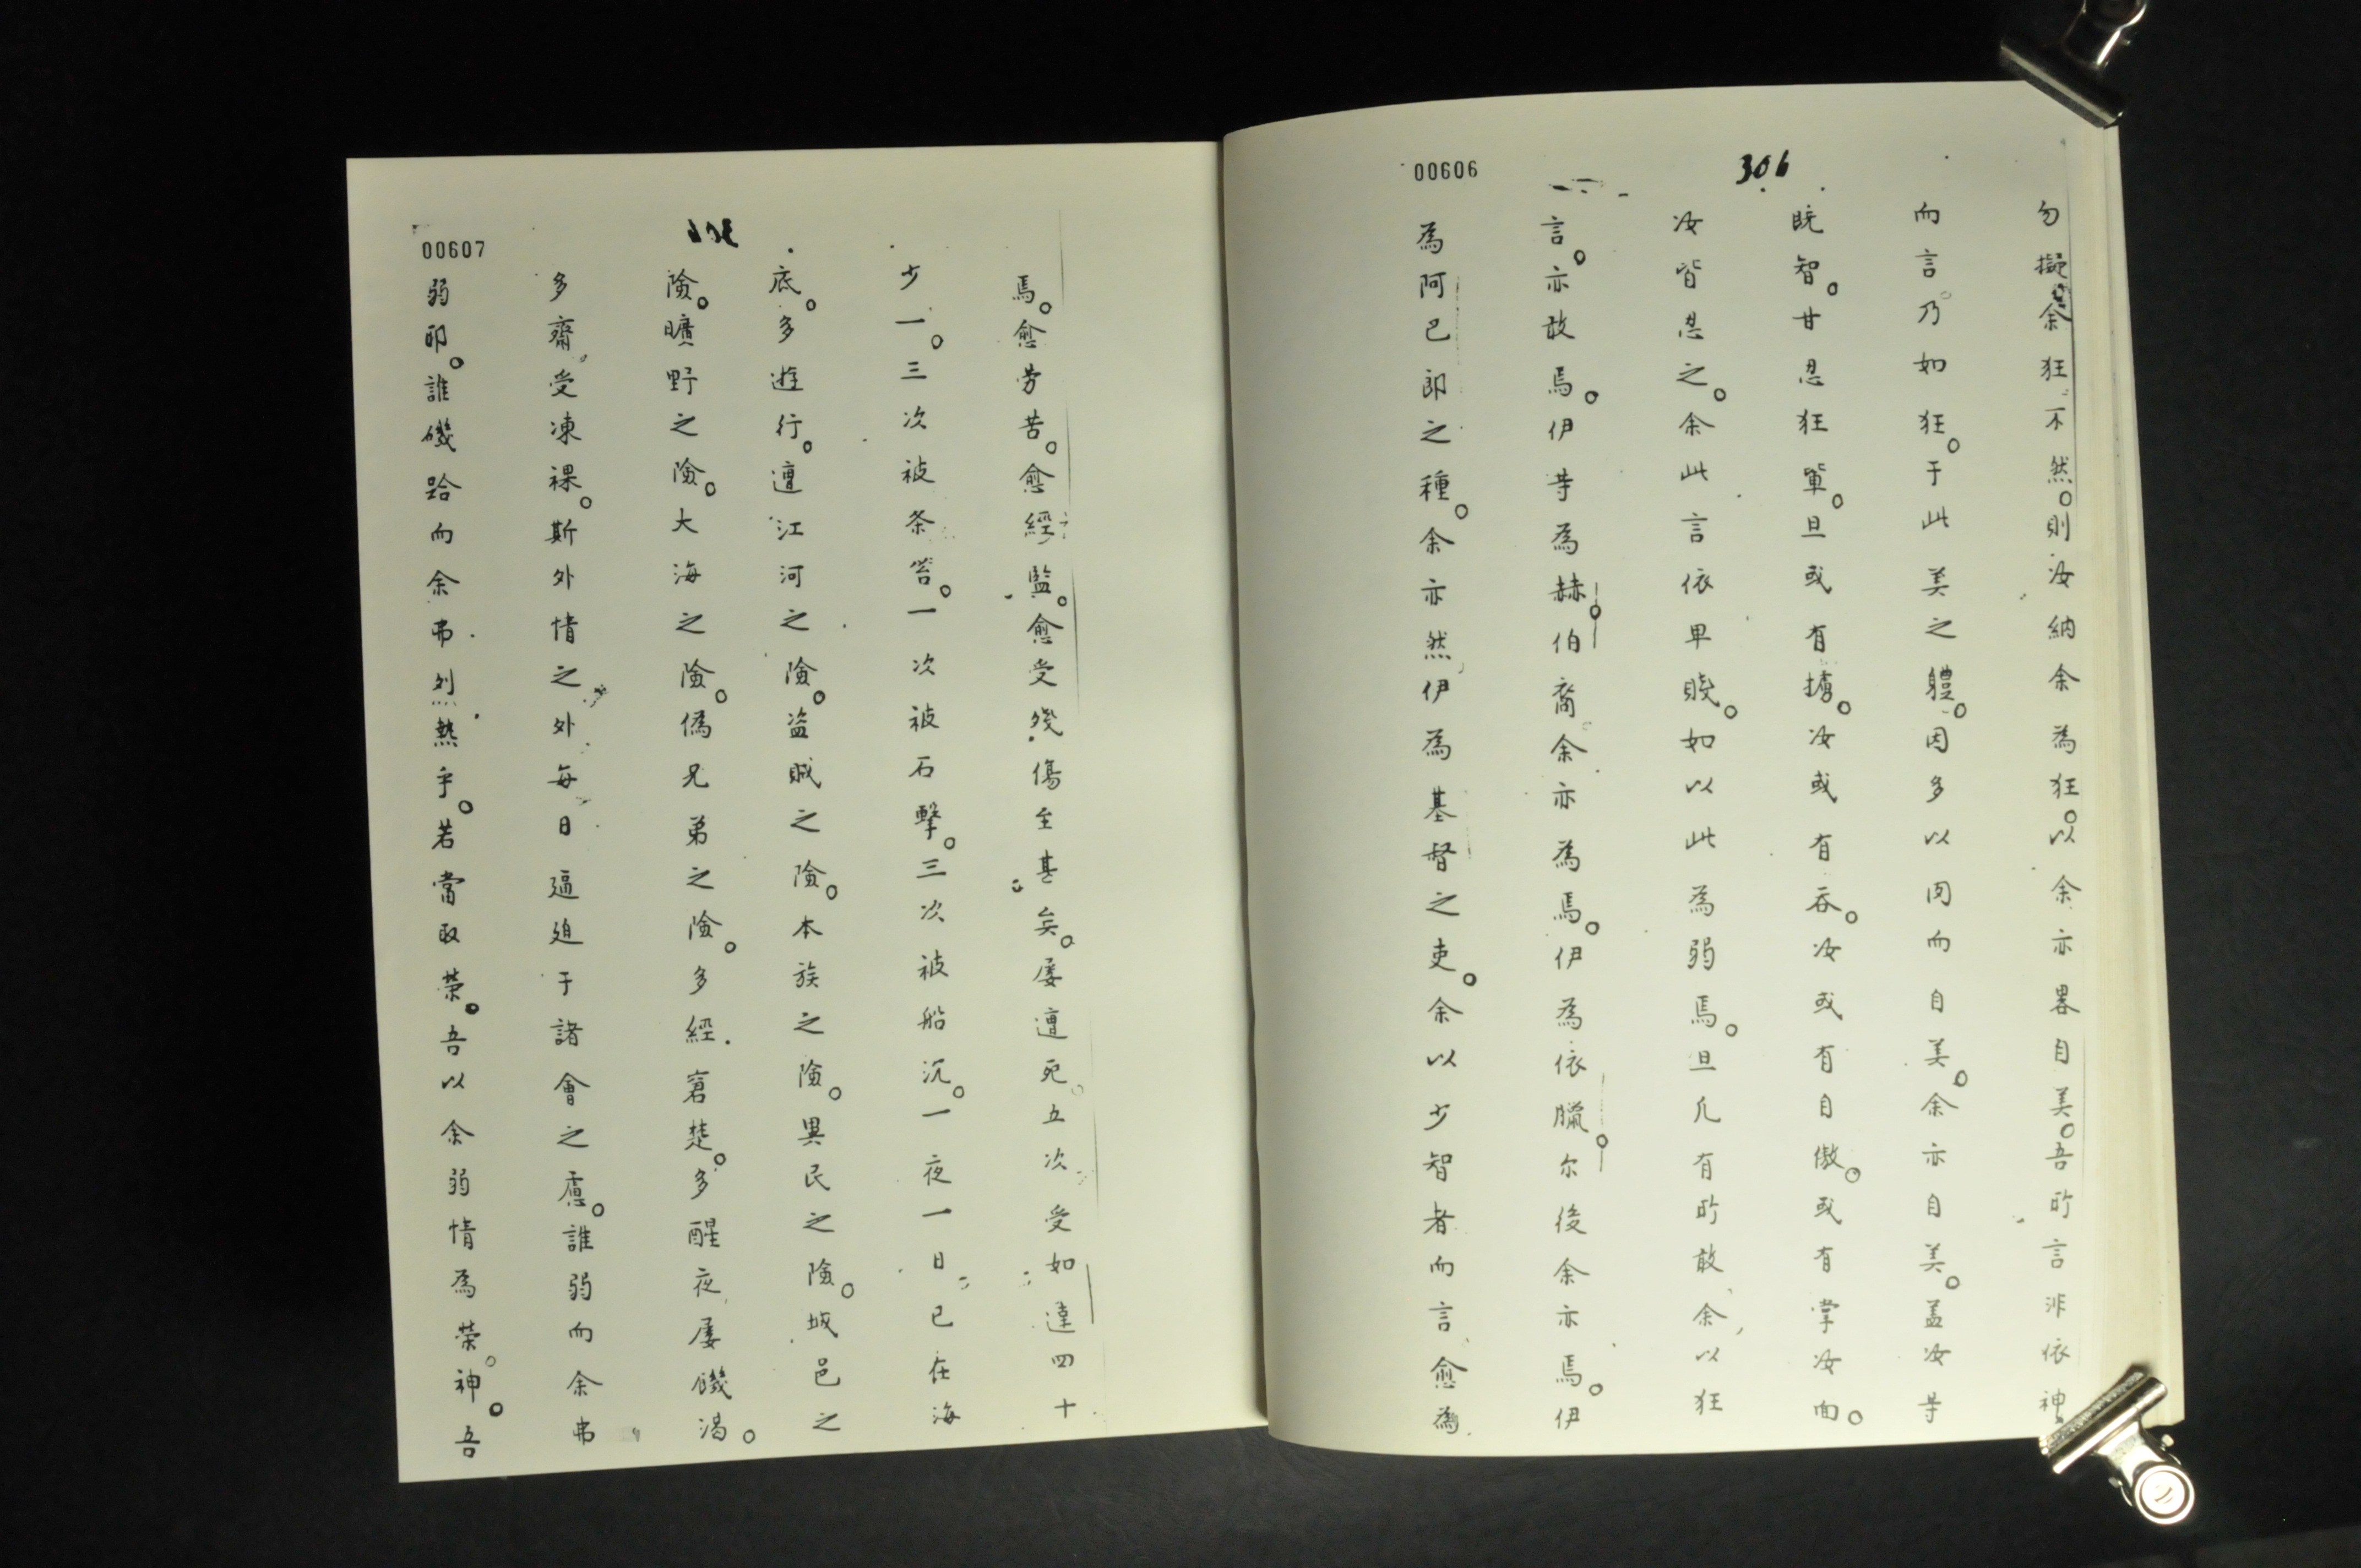 00606
306
勿擬余狂不然。則汝納余為狂。以余亦畧自美。吾所言非依神
而言乃如狂。于此美之軆。因多以肉而自美。余亦自美。盖汝等
既智。甘忍狂輩。旦或有擄。汝或有吞。汝或有自傲。或有掌汝面。
汝皆忍之。余此言依卑賤。如以此為弱焉。旦凢有所敢余以狂
言。亦敢焉。伊等為赫伯裔余亦為焉。伊為依臘尔後余亦焉。伊
為阿巴郎之種。余亦然伊為基督之吏。余以少智者而言愈為
00607
焉。愈劳苦。愈經監。愈受殘傷至甚矣。屡遭死。五次受如達四十
少一。三次被条笞。一次被石擊。三次被船沉。一夜一日已在海
底。多遊行。遭江河之險。盗賊之險。本族之險。異民之險。城邑之
險。曠野之險。大海之險。偽兄弟之險。多經窘楚。多醒夜屡饑渴。
多齋受凍裸。斯外情之外每日逼廹于諸會之慮。誰弱而余弗
弱耶。誰磯跲而余弗列熱乎。若當取荣。吾以余弱情為荣。神。吾